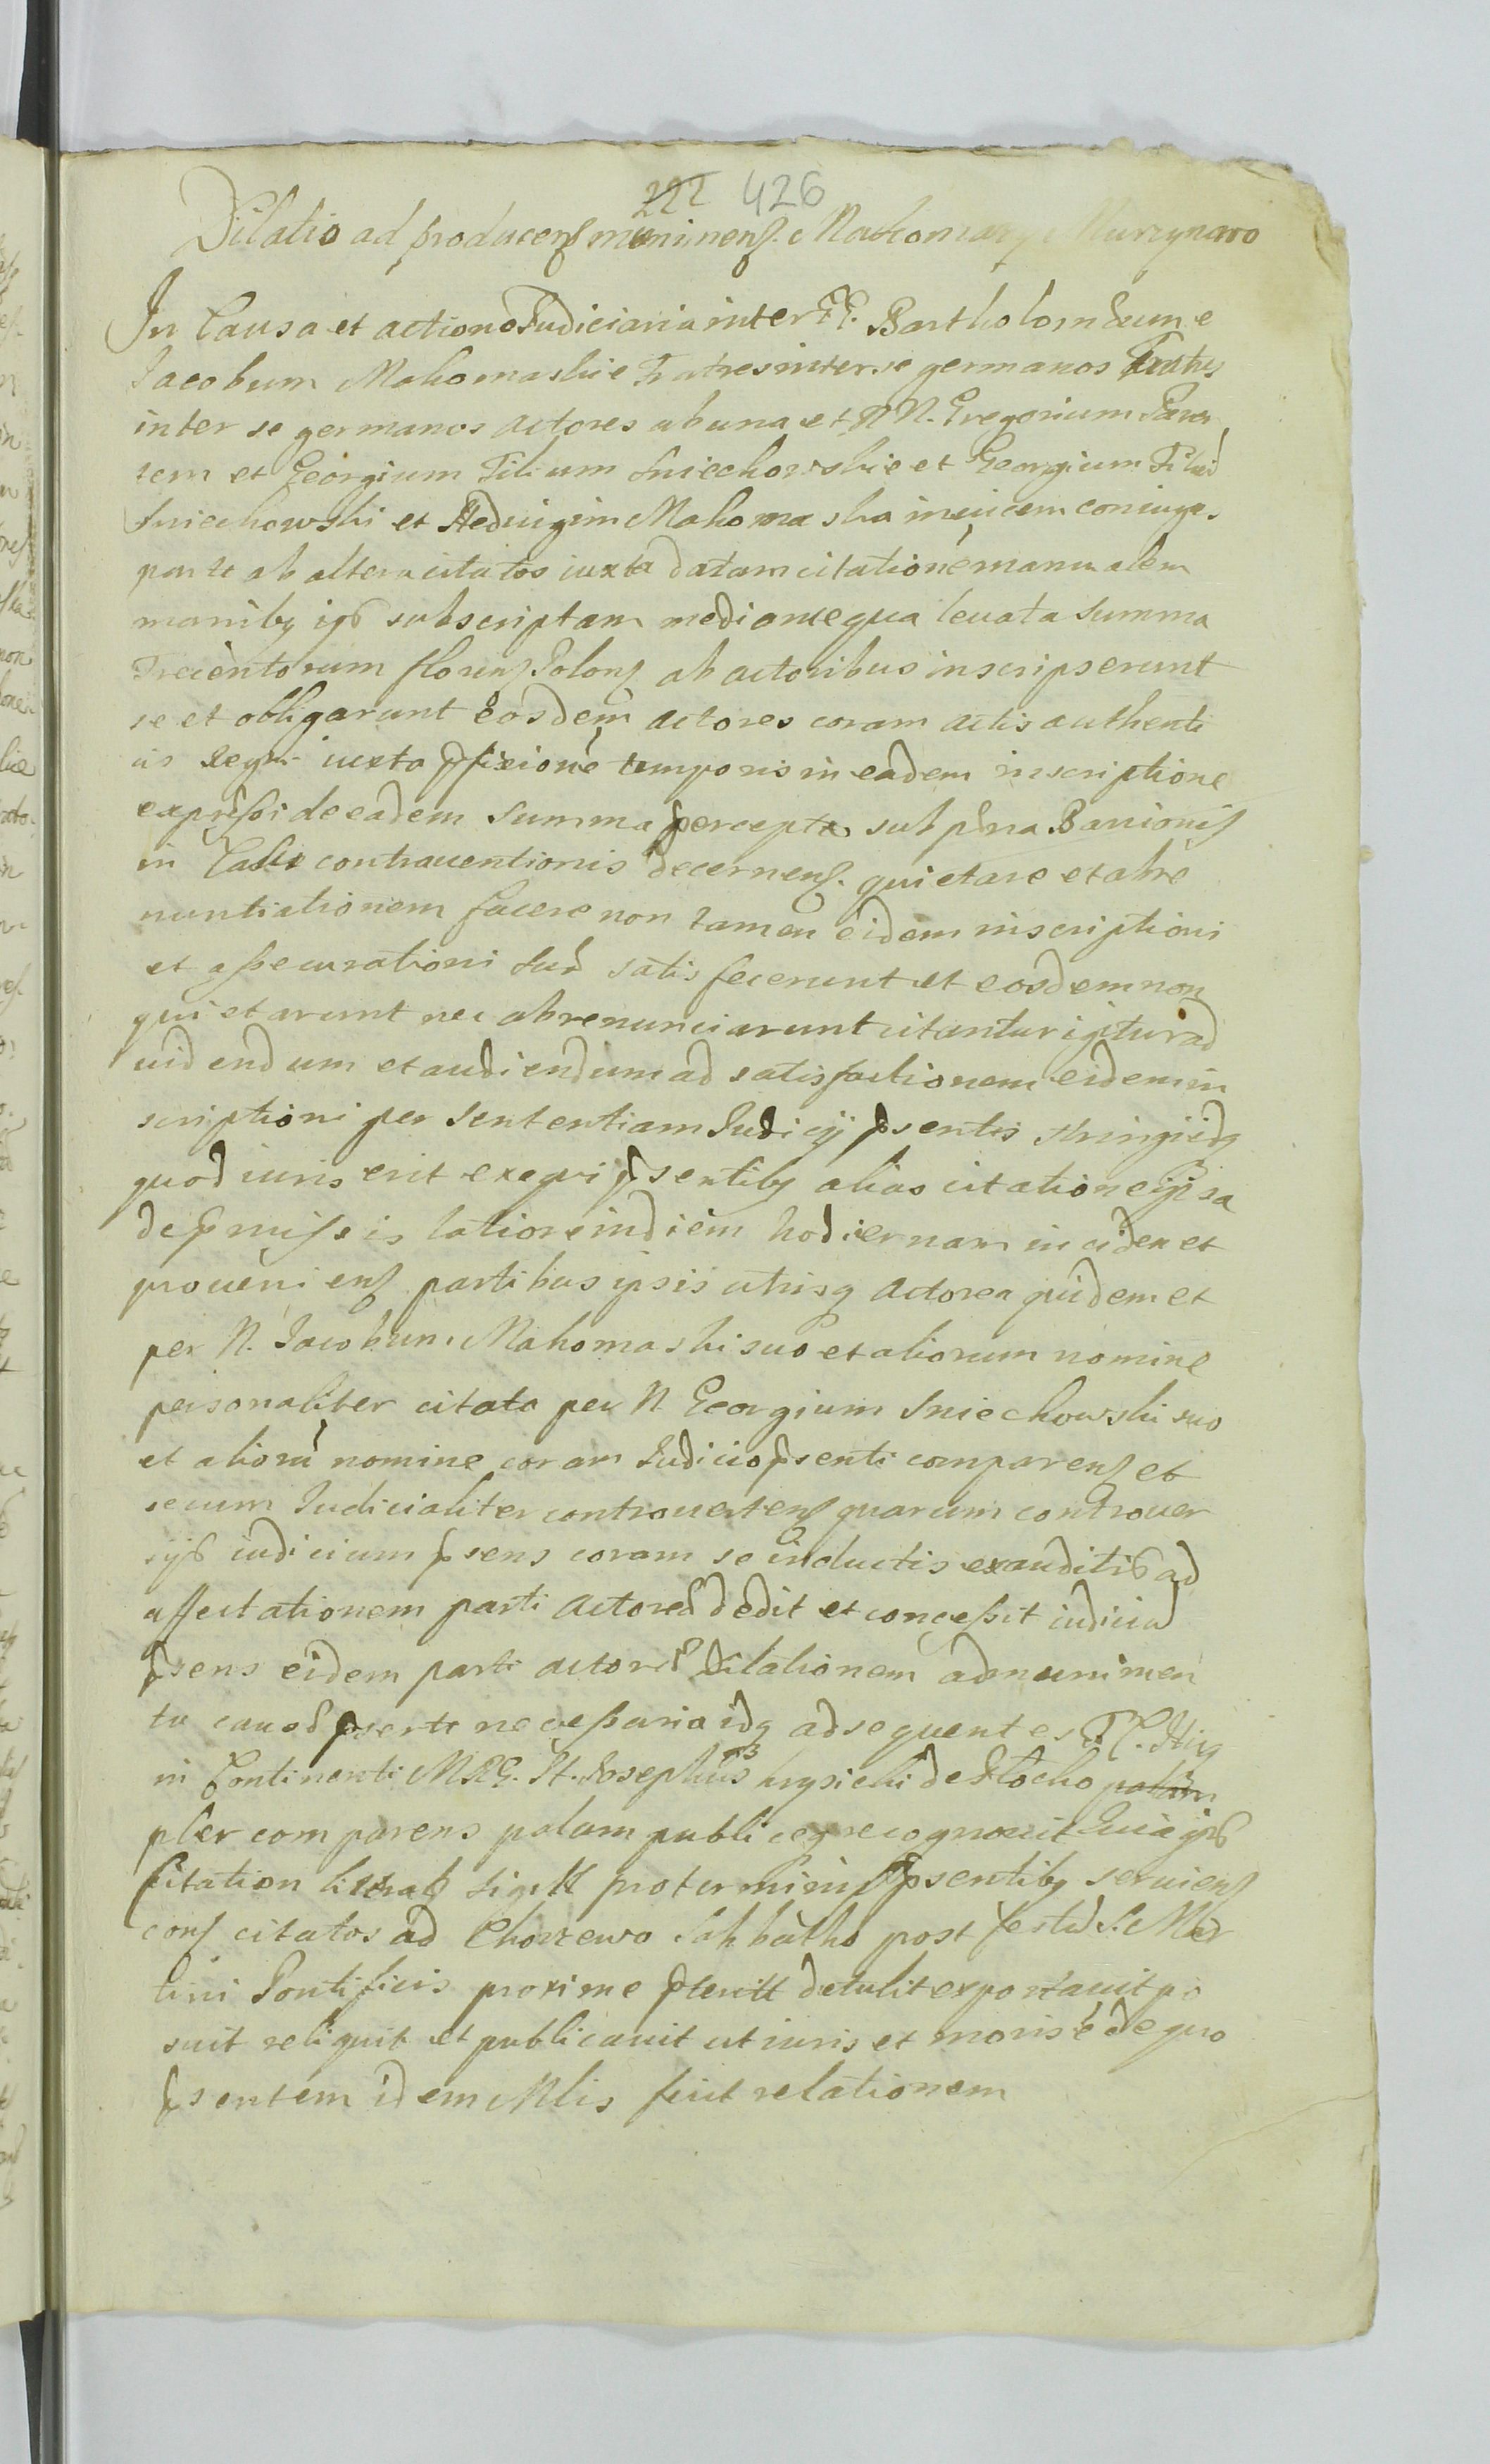 222 426
Dilatio ad producens muninens. Makomasky Murzynowo
In Causa et actione Judiciaria inter NN. Bartholomæum e
Jacobum Makomaskie Fratres inter se germanos Fratres
inter se germanos actores ab una et NN. Gregorium Paren
tem et Georgium Filium Sniechowskie et Georgium Filiū
Sniechowski et Heduigim Makomaska inuicem coniuges
parte ab altera citatos iuxta datam citationē manualem
manibꝫ ipƨ subscriptam medio meqꝫ leuata Summa
Trecentorum florens Polons ab actoribus inscripserunt
se et obligarunt eosdem actores coram actis authenti
cis Regni iuxta pfixionē temporis in eadem inscriptione
expressi de eadem Summa percepta sub pœna Banionis
in Casu contrauentionis decernens. quietare et abre
nuntiationem facere non tamen eidem inscriptioni
et assecurationi Suæ satis fecerunt et eosdem non
quietarunt nec abrenunciarunt citantur igitur ad
uidendum et audiendum ad satisfactionem eidem in
scriptioni per Sententiam Judicij psentis stringi idqꝫ
quod iuris erit exequi psentibꝫ alias citatione ipsa
de pmissis latiore in diem hodiernam inciden et
proueniens partibus ipsis utrisqꝫ actorea quidem et
per N. Jacobum Makomaski suo et aliorum nomine
personaliter citata per N Georgium Sniechowski suo
et aliorū nomine coram Judicio psenti comparens et
secum Judicialiter controuertens quarum controuer
sijs iudicium psens coram se inductis exauditis ad
affectationem parti actoreæ dedit et concessit iudiciū
psens eidem parti actoreæ Dilationem ad munimen
ta causæ psenti necessaria idqꝫ ad sequentes
in Continenti Josephus de Kłocko palam
pler comparens palam publiceqꝫ recognouit Quia ipse
Citation literals Sigill pro terminis psentibꝫ seruiens
cons citatos ad Chorzewo Sabbatho post festū S. Mar
tini Pontificis proxime pteritt detulit exportauit po
suit reliquit et publicauit ut iuris et moris ē de quo
psentem idem Mlis fecit relationem